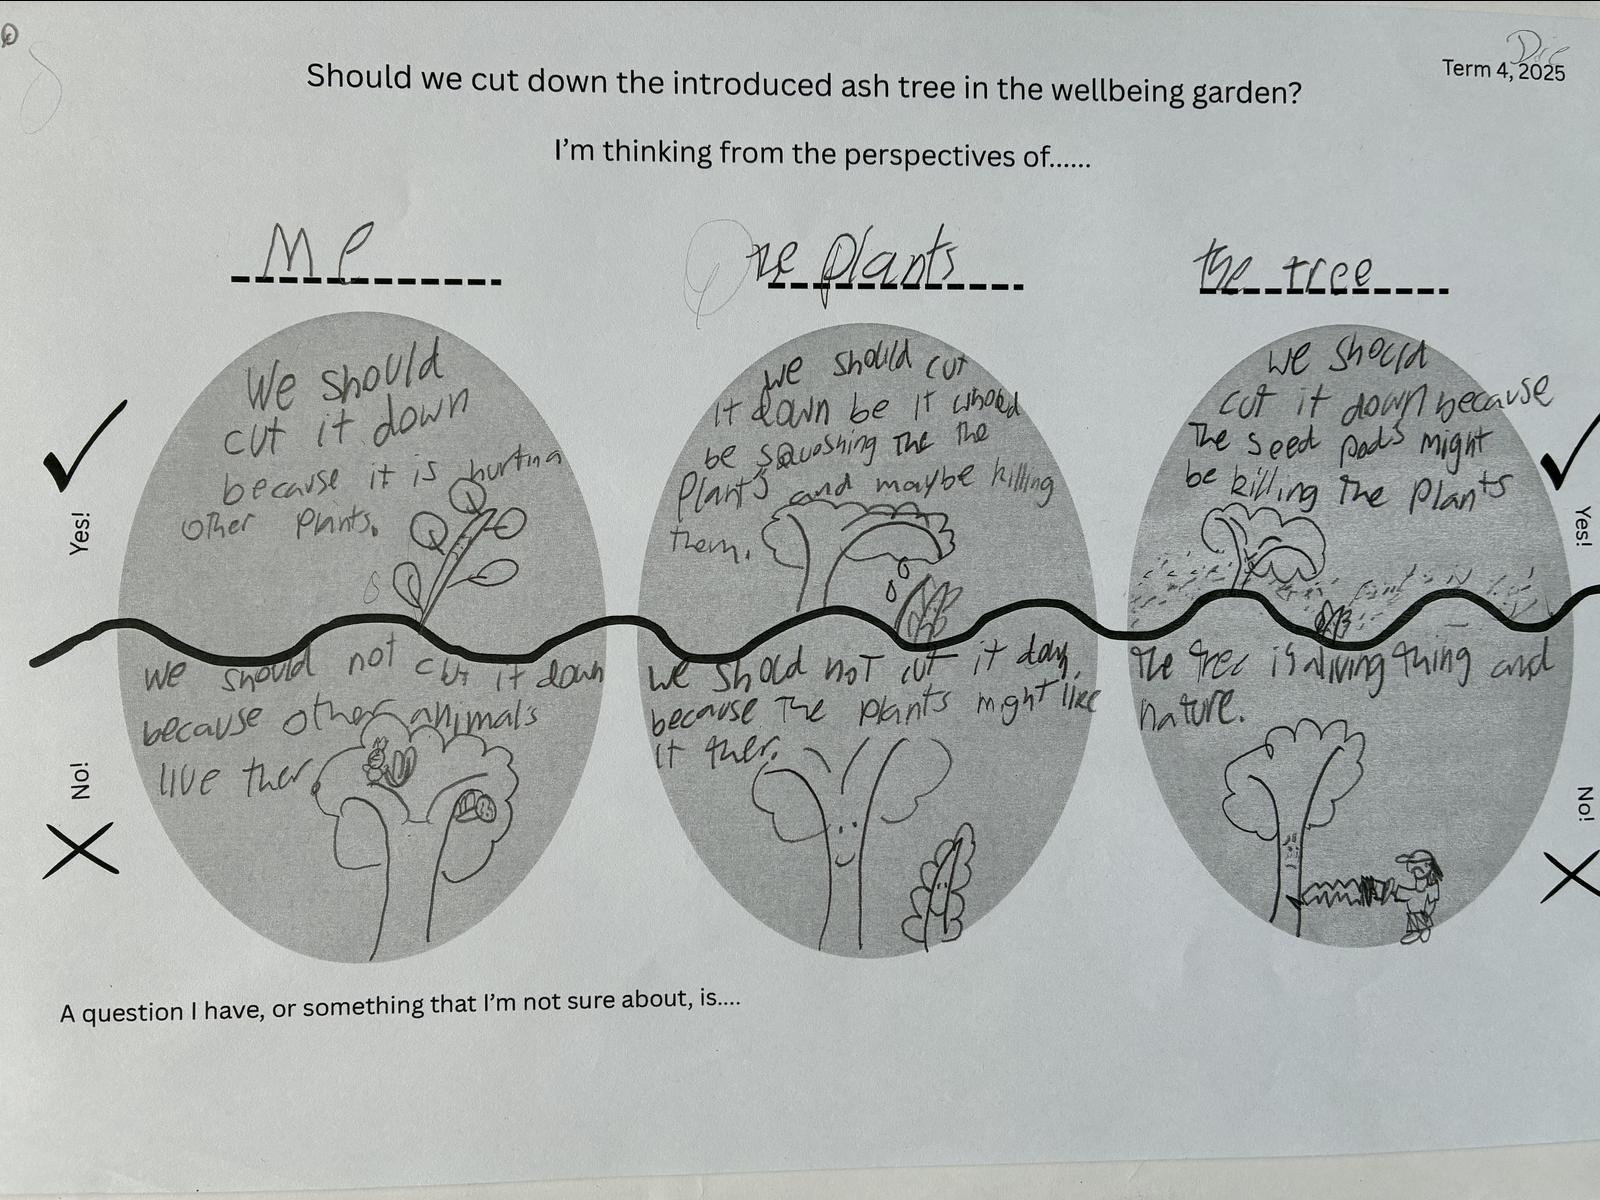 Should we cut down the introduced ash tree in the wellbeing garden?
Term 4, 2025
I'm thinking from the perspectives of......
Me
plants
the tree
Yes!
We should
cut it down
because it is hurting
other plants.
we should cut
it down be it whoed
be squoshing the the
plants and maybe killing
them.
we should
cut it down because
The seed pods might
be killing the plants
Yes!
No!
we should not cut it down
because other animals
live ther
we shold not cut it down
because the plants might like
it ther.
the tree is a living thing and
nature.
No!
A question I have, or something that I'm not sure about, is....